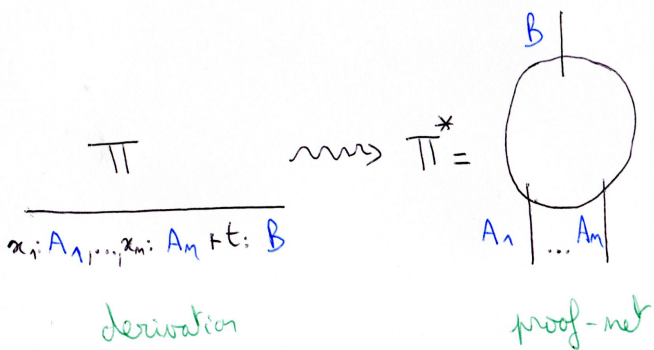 B
Π ⇝ Π* =
x₁: A₁,...,xₙ: Aₙ ⊢ t: B
A₁ ... Aₙ
derivation proof-net